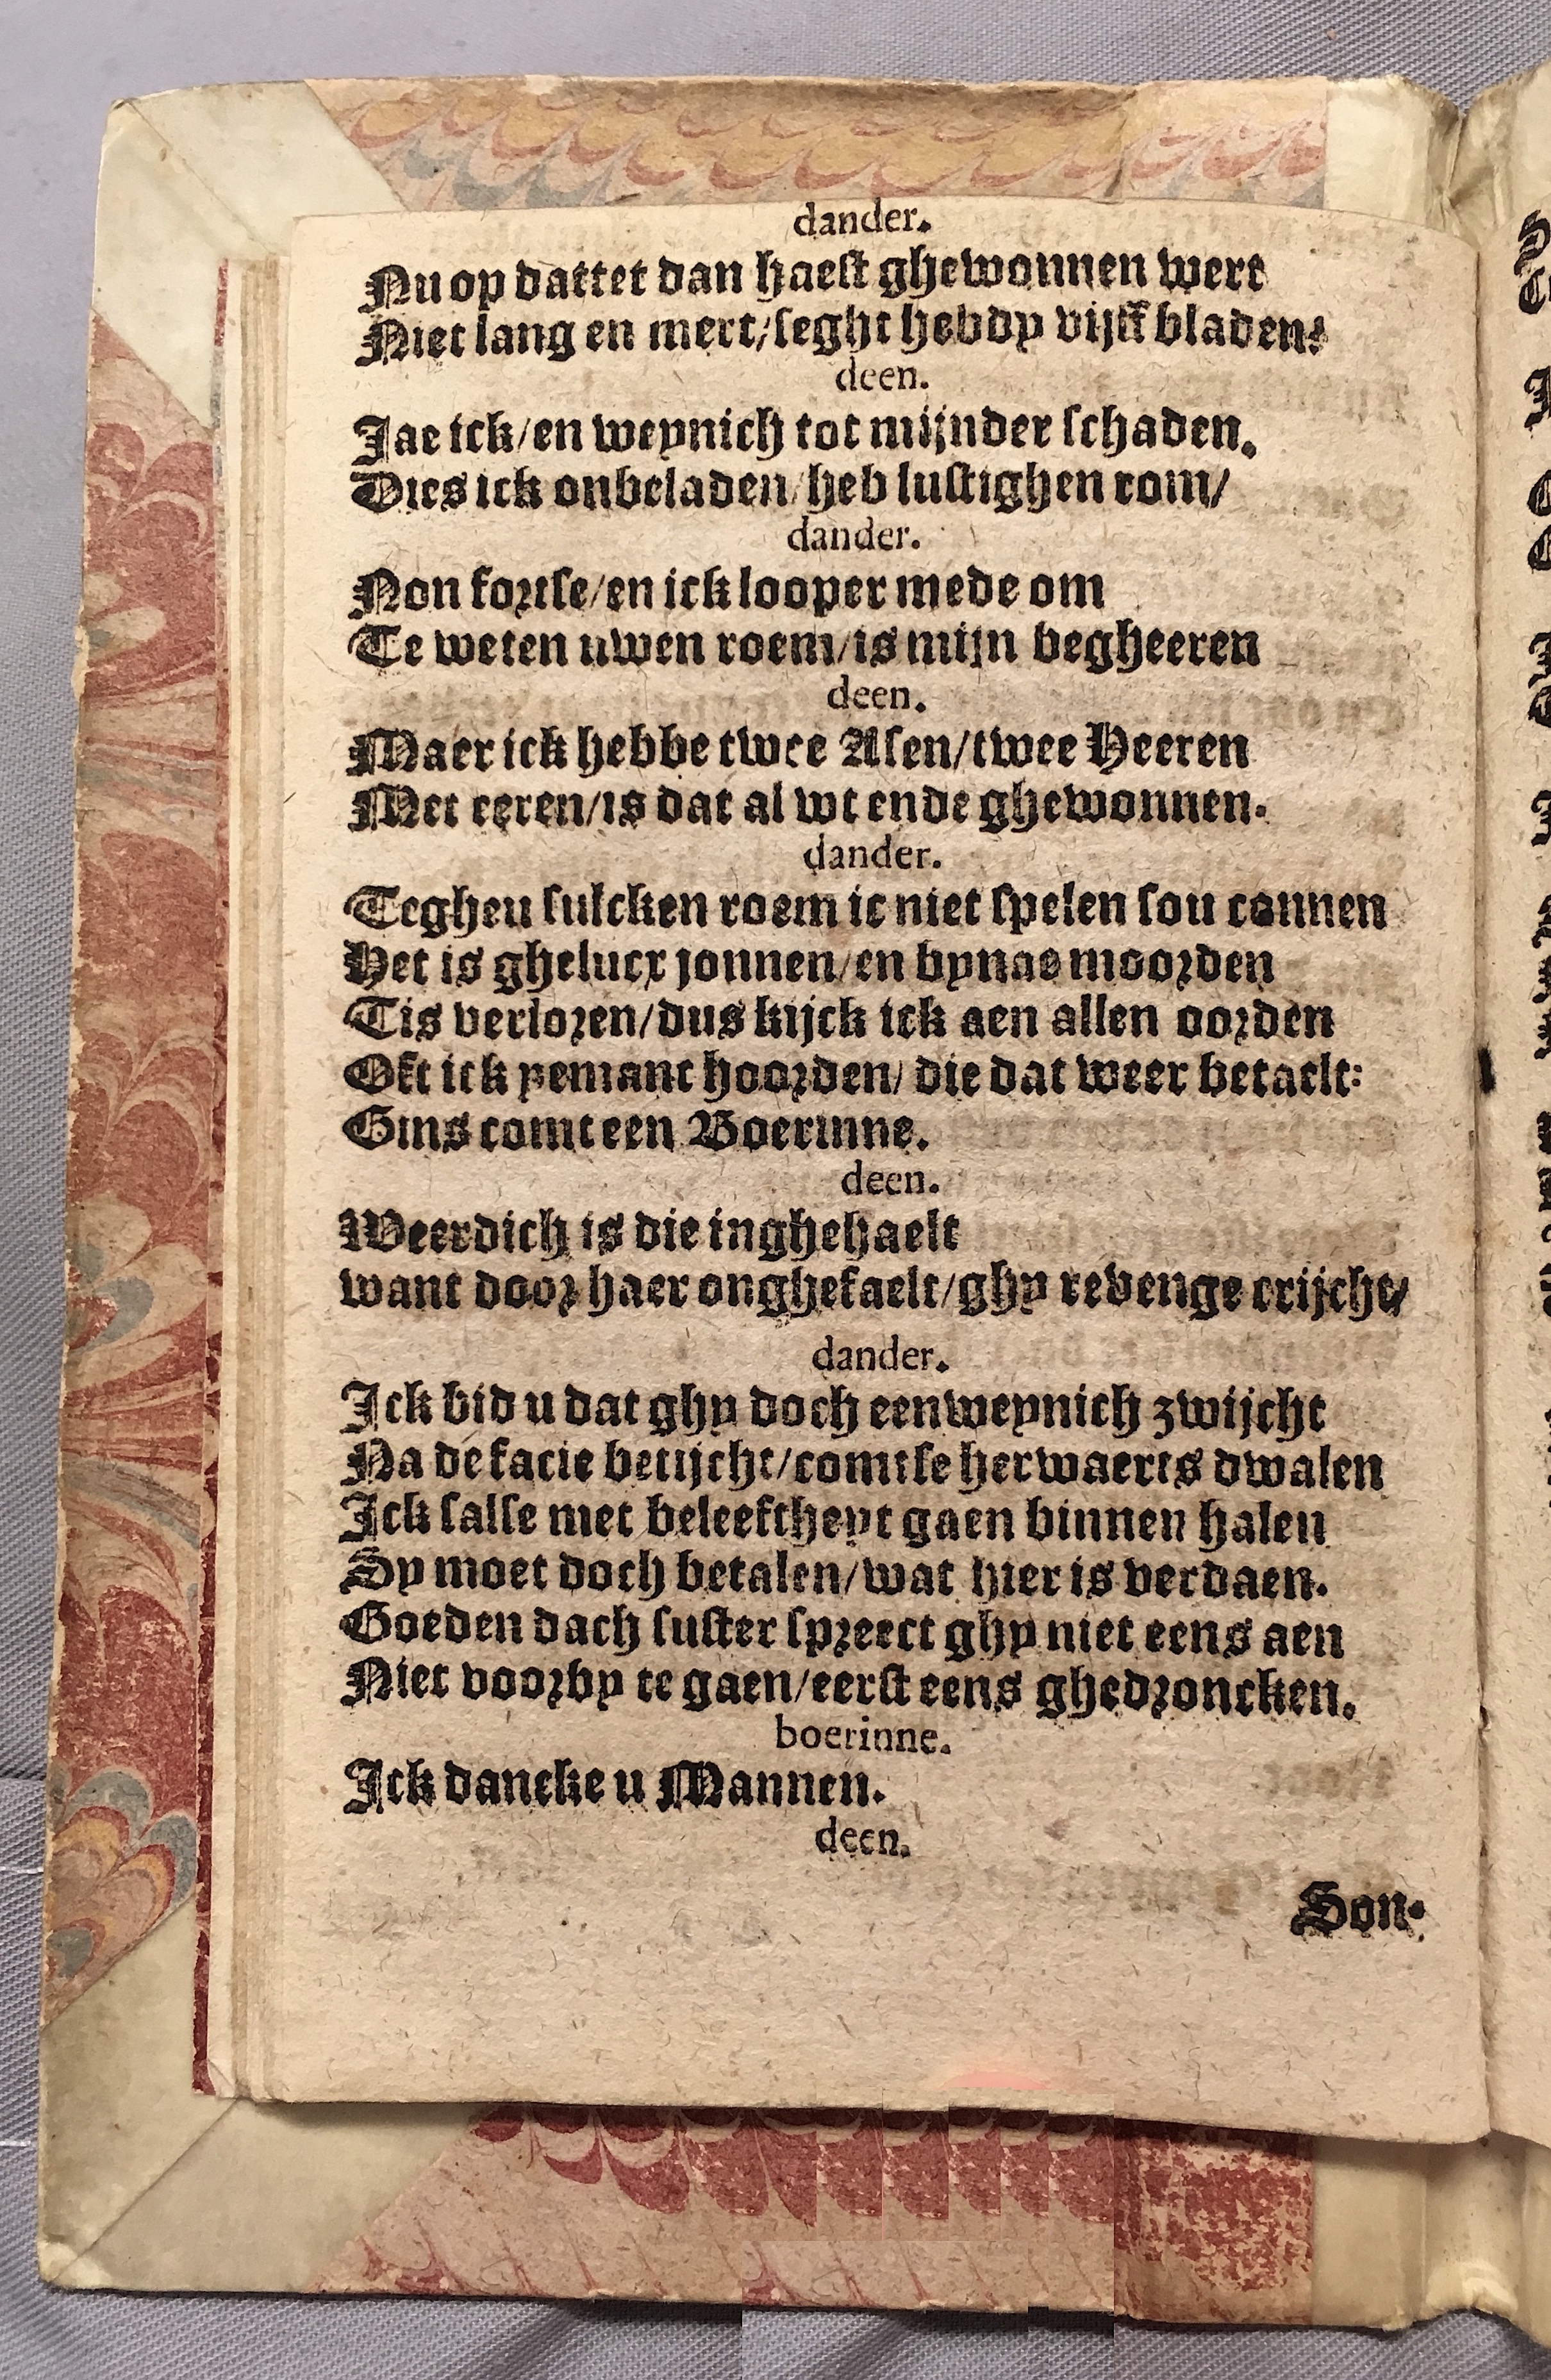 dander.
Nu op dattet dan haest ghewonnen wert
Niet lang en mert/seght hebdy vijff bladen?
deen.
Jae ick/en weynich tot mijnder schaden.
Dies ick onbeladen/heb lustighen rom/
dander.
Non fortse/en ick looper mede om
Te weten uwen roem/is mijn begheeren
deen.
Maer ick hebbe twee Asen/twee Heeren
Met eeren/is dat al wt ende ghewonnen.
dander.
Tegheu sulcken roem ic niet spelen sou connen
Het is ghelucx jonnen/en bynae moorden
Tis verloren/dus kijck ick aen allen oorden
Oft ick yemant hoorden/ die dat weer betaelt:
Gins comt een Boerinne.
deen.
Weerdich is die inghehaelt
want door haer onghefaelt/ghy revenge crijcht/
dander.
Ick bid u dat ghy doch een weynich zwijcht
Na de facie betijcht/comtse herwaerts dwalen
Ick salse met beleeftheyt gaen binnen halen
Sy moet doch betalen/wat hier is verdaen.
Goeden dach suster spreect ghy niet eens aen
Niet voorby te gaen/eerst eens ghedroncken.
boerinne.
Ick dancke u Mannen.
deen.
Son-